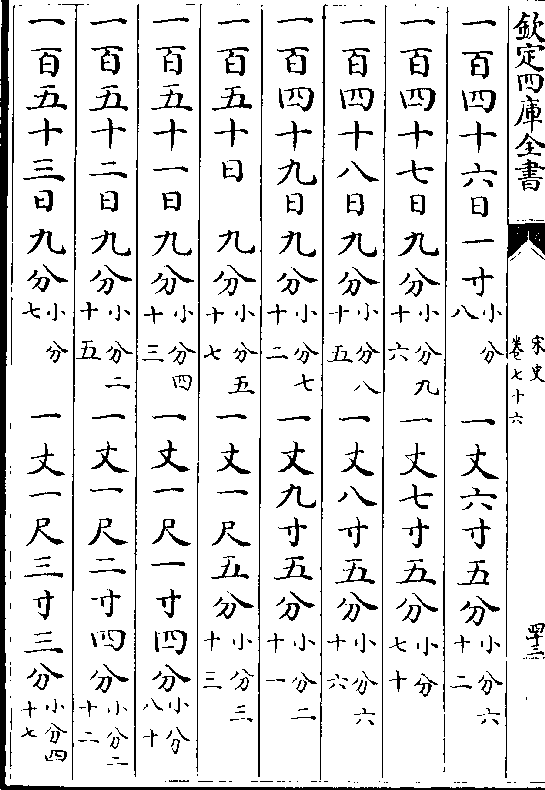 欽定四庫全書
宋史
卷七十六
四十三
一百四十六日一寸小分八 一丈六寸五分小分六十二
一百四十七日九分小分九十六 一丈七寸五分小分七十
一百四十八日九分小分八十五 一丈八寸五分小分六十六
一百四十九日九分小分七十二 一丈九寸五分小分二十一
一百五十日 九分小分五十七 一丈一尺五分小分三十三
一百五十一日九分小分四十三 一丈一尺一寸四分小分八十
一百五十二日九分小分二十五 一丈一尺二寸四分小分二十二
一百五十三日九分小分七 一丈一尺三寸三分小分四十七